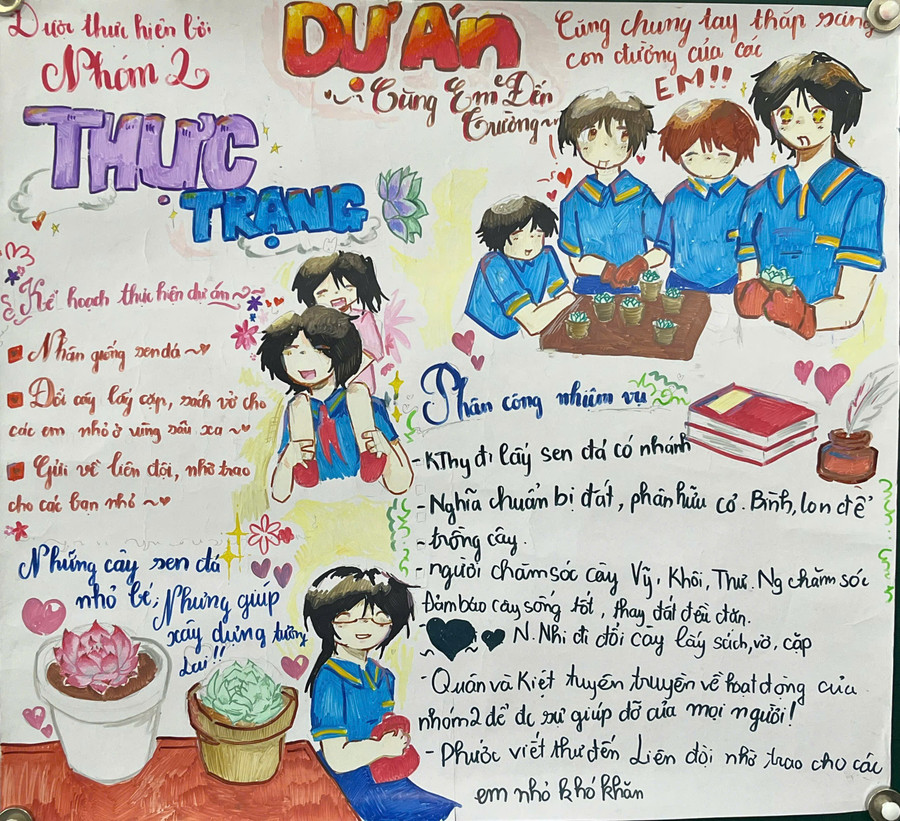 Được thực hiện bởi
Nhóm 2
DỰ ÁN
Cùng Em Đến
Trường~
Cùng chung tay thắp sáng
con đường của các
EM!!
THỰC
TRẠNG
Kế hoạch thực hiện dự án
Nhân giống sen đá ~
Đổi cây lấy cặp, sách vở cho
các em nhỏ ở vùng sâu xa ~
Gửi về liên đội, nhờ trao
cho các bạn nhỏ ~
Những cây sen đá
nhỏ bé,
Nhưng giúp
xây dựng tương
lai!!
Phân công nhiệm vụ
- KThy đi lấy sen đá có nhánh
- Nghĩa chuẩn bị đất, phân hữu cơ. Bình, lon để
- trồng cây.
- người chăm sóc cây Vỹ, Khôi, Thư. Ng chăm sóc
Đảm bảo cây sống tốt, thay đất đều đặn.
N. Nhi đi đổi cây lấy sách, vở, cặp
- Quán và Kiệt tuyên truyền về hoạt động của
nhóm 2 để đc sự giúp đỡ của mọi người!
- Phước viết thư đến Liên đội nhờ trao cho các
em nhỏ khó khăn